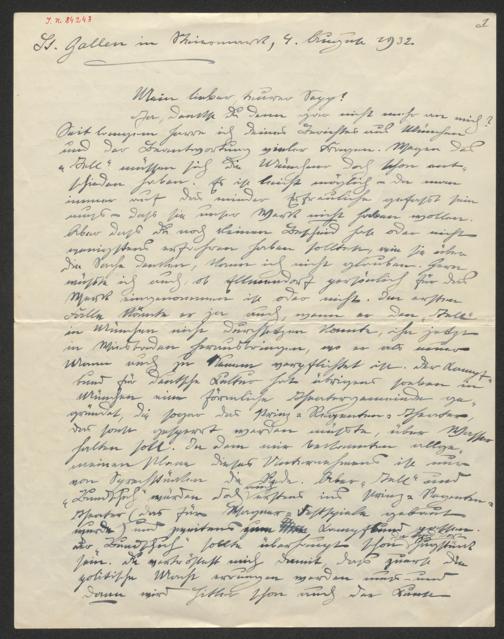 J.N. 84243
1
St. Gallen in Steiermark, 4. August 1932.
Mein lieber teurer Sepp!
Ja, denkst Du denn gar nicht mehr an mich?
Seit langem harre ich Deines Berichtes aus München
und der Beantwortung vieler Fragen. Wegen des
"Tell" müssen sich die Münchner doch schon ent-
schieden haben. Es ist leicht möglich – da man
immer auf das minder Erfreuliche gefasst sein
muss – dass sie unser Werk nicht haben wollen.
Aber dass Du noch keinen Bescheid hast oder nicht
wenigstens erfahren haben solltest, wie sie über
die Sache denken, kann ich nicht glauben. Gern
wüsste ich auch, ob Ellmendorf persönlich für das
Werk eingenommen ist oder nicht. Im ersten
Falle könnte er ja auch, wenn er den "Tell"
in München nicht durchsetzen könnte, ihn jetzt
in Wiesbaden herausbringen, wo er als neuer
Mann auch zu verpflichtet ist. Der Kampf-
bund für deutsche Kultur hat übrigens soeben in
München eine förmliche Theatergemeinde ge-
gründet, die sogar das Prinz-Regenten-Theater,
das sonst gesperrt werden müsste, über Wasser
halten soll. In dem mir bekannten allge-
meinen Plane dieses Unternehmens ist nur
von Sprechstücken die Rede. Aber "Tell" und
"Bundschuh" würden doch erstens ins Prinz-Regenten-
Theater (das für Wagner-Festspiele gebaut
wurde) und zweitens zum Kampfbund passen.
Der "Bundschuh" sollte überhaupt schon
sein. Du vertröstest mich damit, dass zuerst die
politische Macht errungen werden muss – und
dann wird Hitler schon auch der Kunst